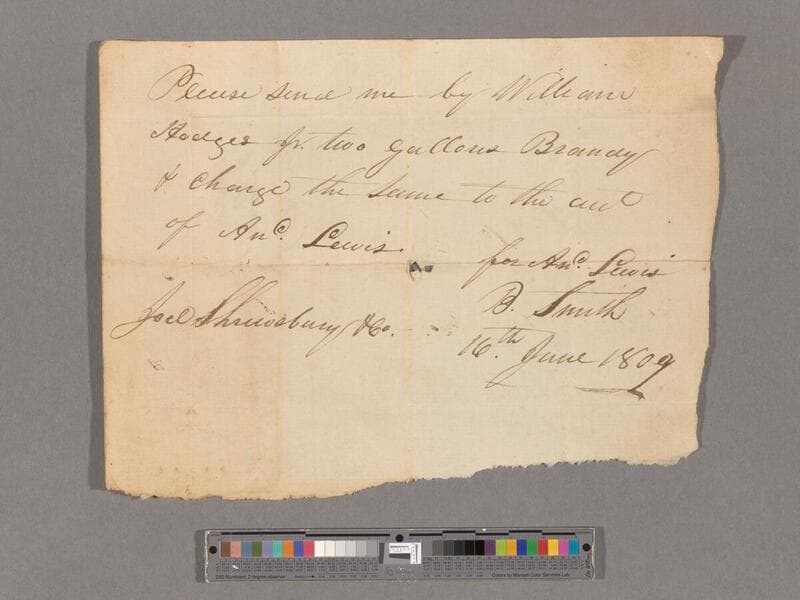 Please send me by William
Hodges jr. two gallons Brandy
& Charge the same to the acct
of Anᵈ. Lewis.
for Anᵈ. Lewis
B. Smith
Joel Shrewsbury & Co.
16.th June 1809